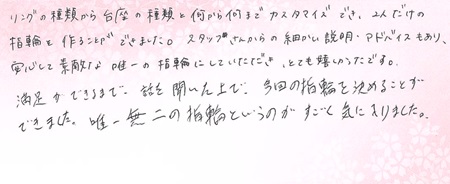 リングの種類から台座の種類と何から何までカスタマイズでき、2人だけの
指輪を作ることができました。スタッフさんからの細かい説明・アドバイスもあり、
安心して素敵な唯一の指輪にしていただき、とても嬉しかったです。
満足ができるまで話を聞いた上で、今回の指輪を決めることが
できました。唯一無二の指輪というのがすごく気に入りました。